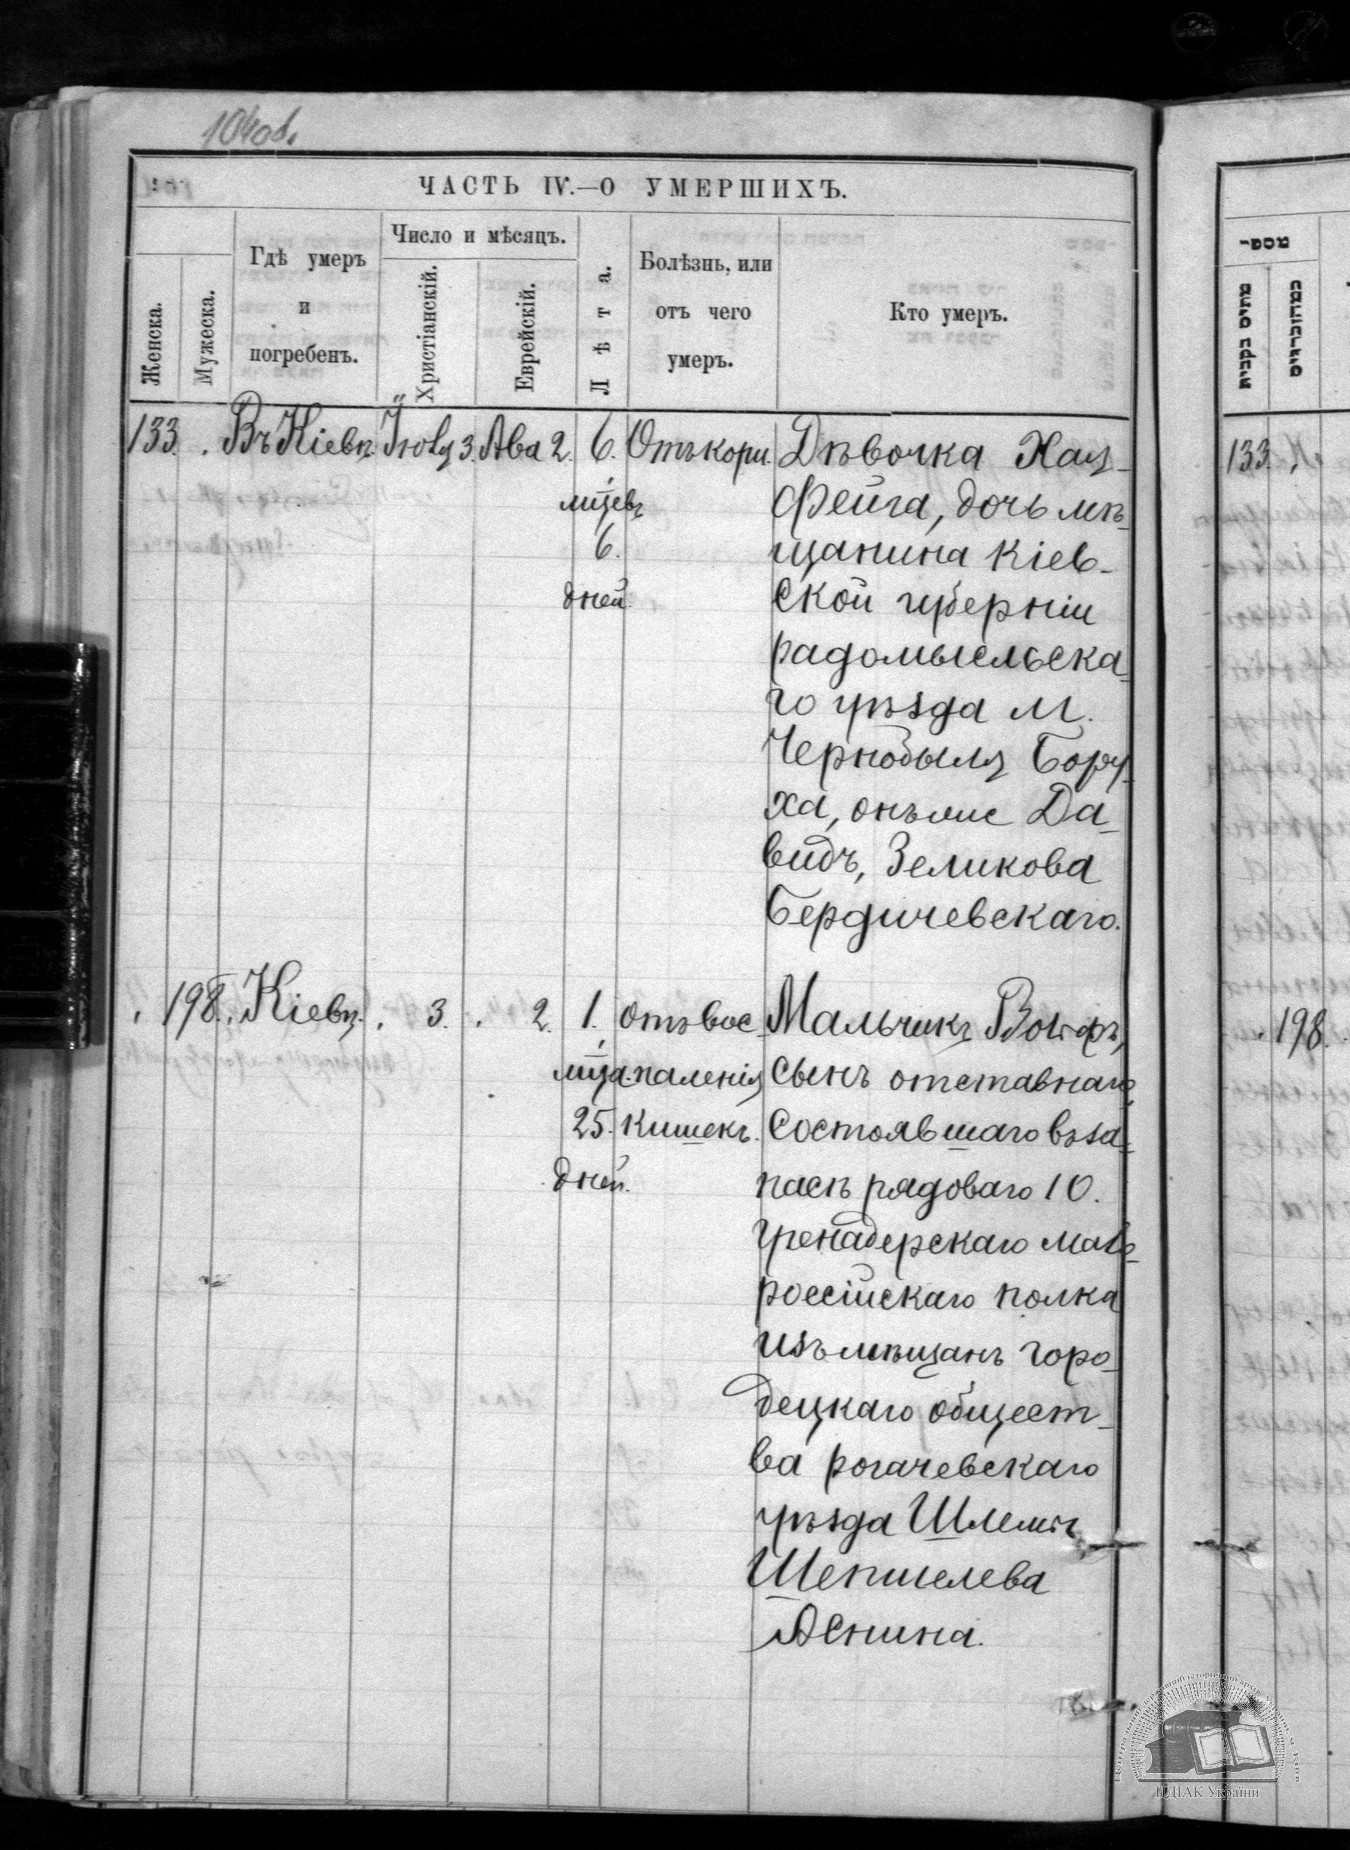 104об.
ЧАСТЬ IV.—О УМЕРШИХЪ.
Женска.
Мужеска.
Гдѣ умеръ
и
погребенъ.
Число и мѣсяцъ.
Христіанскій.
Еврейскій.
Лѣта.
Болѣзнь, или
отъ чего
умеръ.
Кто умеръ.
133. Въ Кіевѣ Іюля 3. Ава 2. 6. Отъ кори. Дѣвочка Хая-
мцѣвъ Фейга, дочь мѣ-
6. щанина Кіев-
дней. ской губерніи
радомысльска-
го уѣзда м.
Чернобыля Бору-
ха, онъ же Да-
видъ, Зеликова
Бердичевскаго.
198. Кіевѣ. 3. 2. 1. Отъ вос- Мальчикъ Вольфъ,
мца. паленія сынъ отставнаго,
25. кишекъ. состоявшаго въ за-
дней. пасѣ рядоваго 10.
гренадерскаго мало-
россійскаго полка
изъ мѣщанъ горо-
децкаго общест-
ва рогачевскаго
уѣзда Шлемы
Шепшелева
Аснина.
מספר
מתים נקבות
133
198.
ЦДІАК України